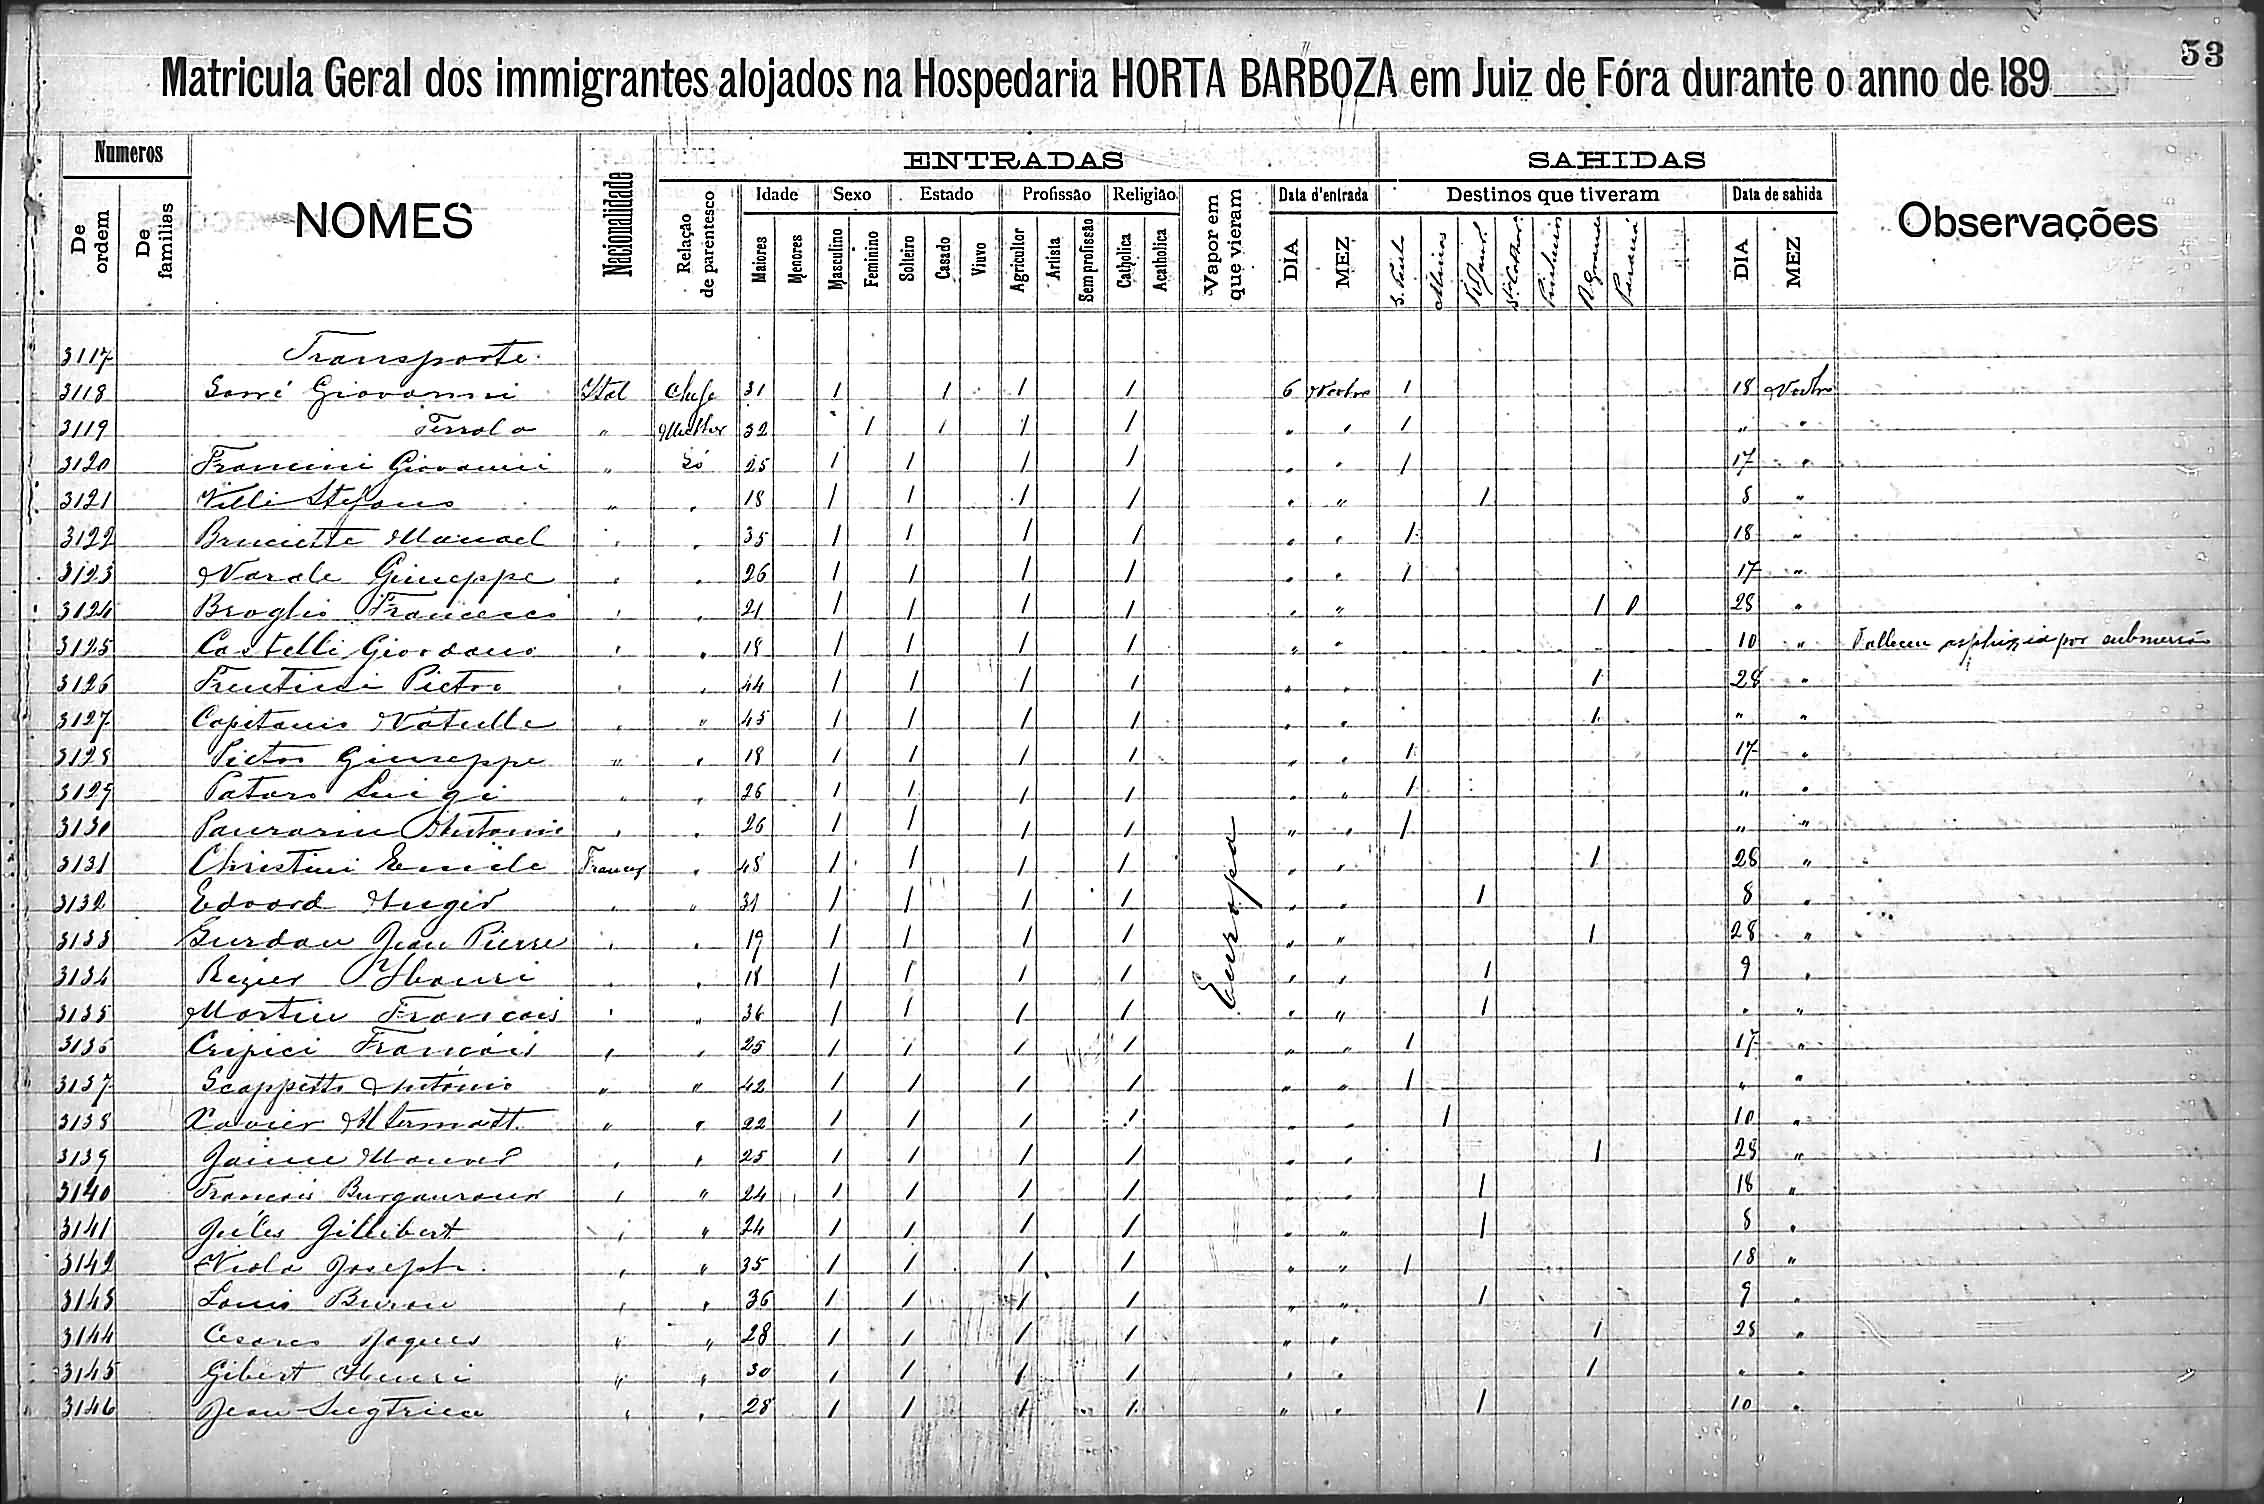 53
Matricula Geral dos immigrantes alojados na Hospedaria HORTA BARBOZA em Juiz de Fóra durante o anno de 189
Numeros NOMES Nacionalidade ENTRADAS SAHIDAS Observações
De ordem De familias Relação de parentesco Idade Sexo Estado Profissão Religião Vapor em que vieram Data d'entrada Destinos que tiveram Data de sahida
Maiores Menores Masculino Feminino Solteiro Casado Viuvo Agricultor Artista Sem profissão Catholica Acatholica DIA MEZ S. Paulo Minas R. Jan.º Sta Cathar. R. Grande Paraná DIA MEZ
3117 Transporte
3118 Giovanni Ital Chefe 31 1 1 1 1 6 Novbro 1 18 Novbro
3119 " Mulher 32 1 1 1 1 " " 1 " "
3120 Francini Giovanni " Só 25 1 1 1 1 " " 1 17 "
3121 Villi Stefano " " 18 1 1 1 1 " " 1 8 "
3122 Manoel " " 35 1 1 1 1 " " 1 18 "
3123 Narale Giuseppe " " 26 1 1 1 1 " " 1 17 "
3124 Broglio Francesco " " 21 1 1 1 1 " " 1 28 "
3125 Castelli Giordano " " 18 1 1 1 1 " " 10 " Falleceu asphixia por submersão
3126 Pietro " " 44 1 1 1 1 " " 1 28 "
3127 Capitanio " " 45 1 1 1 1 " " 1 " "
3128 Pietro Giuseppe " " 18 1 1 1 1 " " 1 17 "
3129 Pataro Luigi " " 26 1 1 1 1 " " 1 " "
3130 Antonio " " 26 1 1 1 1 " " 1 " "
3131 Christini Emile Francez " 48 1 1 1 1 Europa " " 1 28 "
3132 Edoard " " 31 1 1 1 1 " " 1 8 "
3133 Jean Pierre " " 19 1 1 1 1 " " 1 28 "
3134 " " 18 1 1 1 1 " " 1 9 "
3135 Martin François " " 36 1 1 1 1 " " 1 " "
3136 François " " 25 1 1 1 1 " " 1 17 "
3137 Scappetto António " " 42 1 1 1 1 " " 1 " "
3138 Xavier Altermatt " " 22 1 1 1 1 " " 1 10 "
3139 " " 25 1 1 1 1 " " 1 28 "
3140 François " " 24 1 1 1 1 " " 1 18 "
3141 Jules Gillibert " " 24 1 1 1 1 " " 1 8 "
3142 Viola Joseph " " 35 1 1 1 1 " " 1 18 "
3143 Louis Buron " " 36 1 1 1 1 " " 1 9 "
3144 Jaques " " 28 1 1 1 1 " " 1 28 "
3145 Gibert Henri " " 30 1 1 1 1 " " 1 " "
3146 Jean " " 28 1 1 1 1 " " 1 10 "